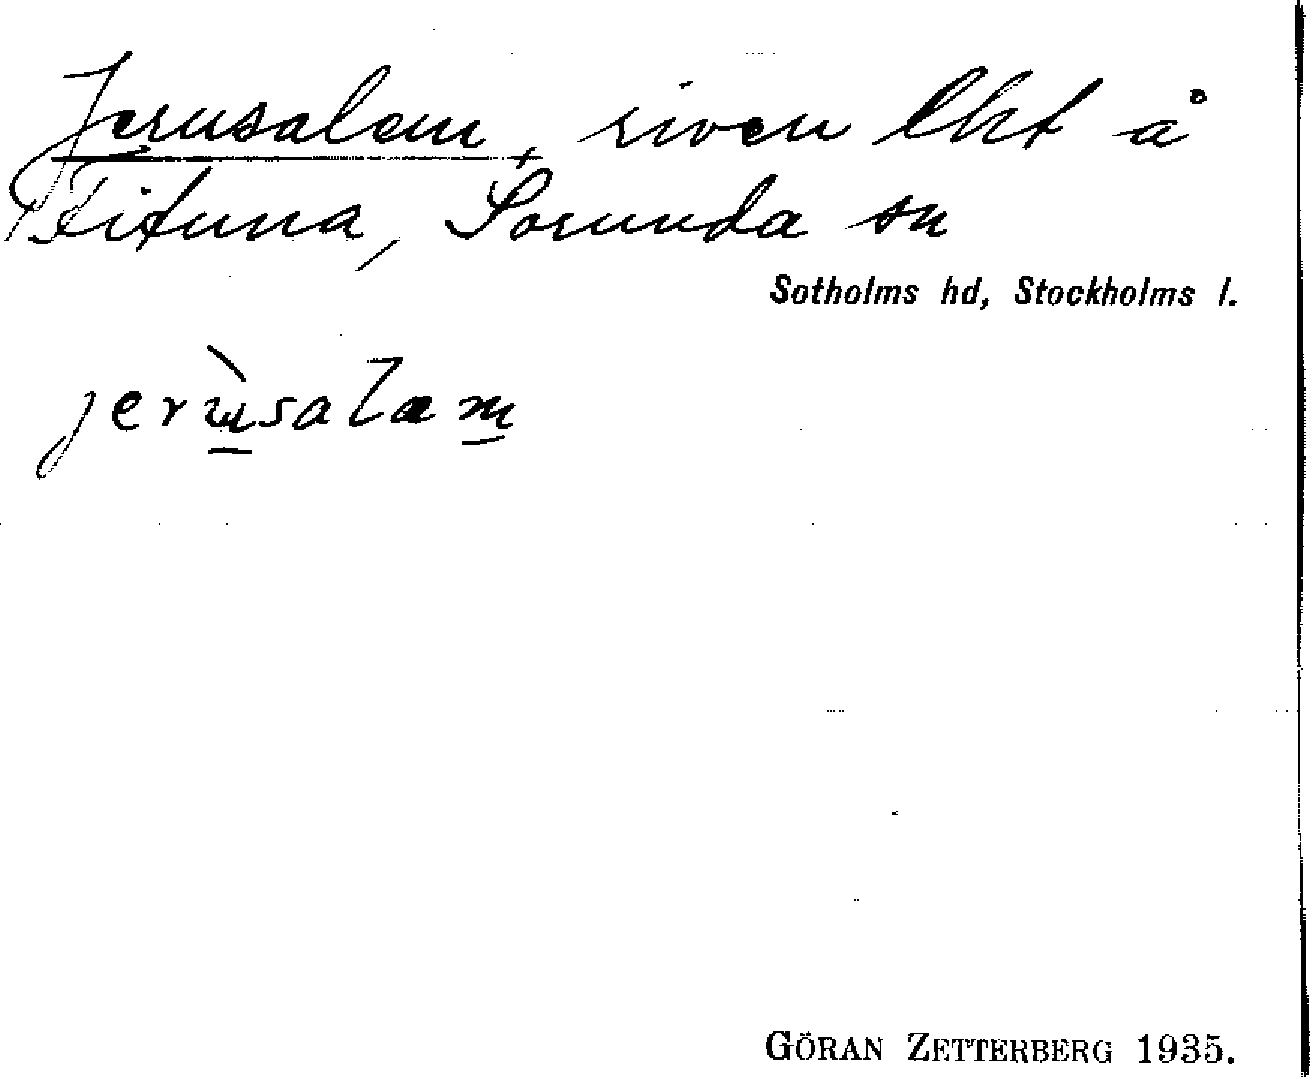 Jerusalem, riven lht å
Fituna, Sorunda sn
Sotholms hd, Stockholms l.
jerùsalæm
GÖRAN ZETTERBERG 1935.